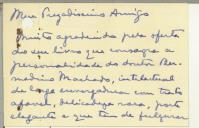 Meu Prezadissimo Amigo
Muito agradecido pela oferta
do seu livro que consagra a
personalidade do doutor Ber-
nardino Machado, intelectual
de larga envergadura com trato
afavel, delicadeza rara, porte
elegante e que tem de fulgurar